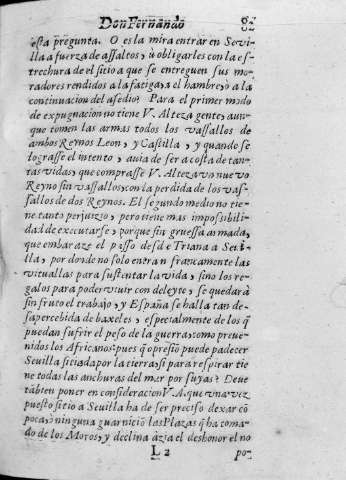 Don Fernando 82
esta pregunta. O es la mira entrar en Sevi-
lla a fuerza de assaltos, ù obligarles con la es-
trechura de el sitio a que se entreguen sus mo-
radores rendidos a la fatiga, a el hambre, o a la
continuacion del asedio? Para el primer modo
de expugnacion no tiene V. Alteza gente, aun-
que tomen las armas todos los vassallos de
ambos Reynos Leon, y Castilla, y quando se
lograsse el intento, avia de ser a costa de tan-
tas vidas, que comprasse V. Alteza vn nuevo
Reyno sin vassallos, con la perdida de los vas-
sallos de dos Reynos. El segundo medio no tie-
ne tanto perjuizio, pero tiene mas impossibili-
dad de executarse, porque sin gruessa armada,
que embaraze el passo desde Triana a Sevi-
lla, por donde no solo entran francamente las
vituallas para sustentar la vida, sino los re-
galos para poder vivir con deleyte, se quedarà
sin fruto el trabajo, y España se halla tan de-
sapercebida de baxeles, especialmente de los q̃
puedan sufrir el peso de la guerra, como preve-
nidos los Africanos: pues q̃ opresiõ puede padecer
Sevilla sitiada por la tierra, si para respirar tie
ne todas las anchuras del mar por suyas? Deve
tãbien poner en consideracion V. A. que vna vez
puesto sitio a Sevilla ha de ser preciso dexar cõ
poca, ò ninguna guarniciõ las Plazas q̃ ha toma-
do de los Moros, y declina àzia el deshonor el no
L 2 po-